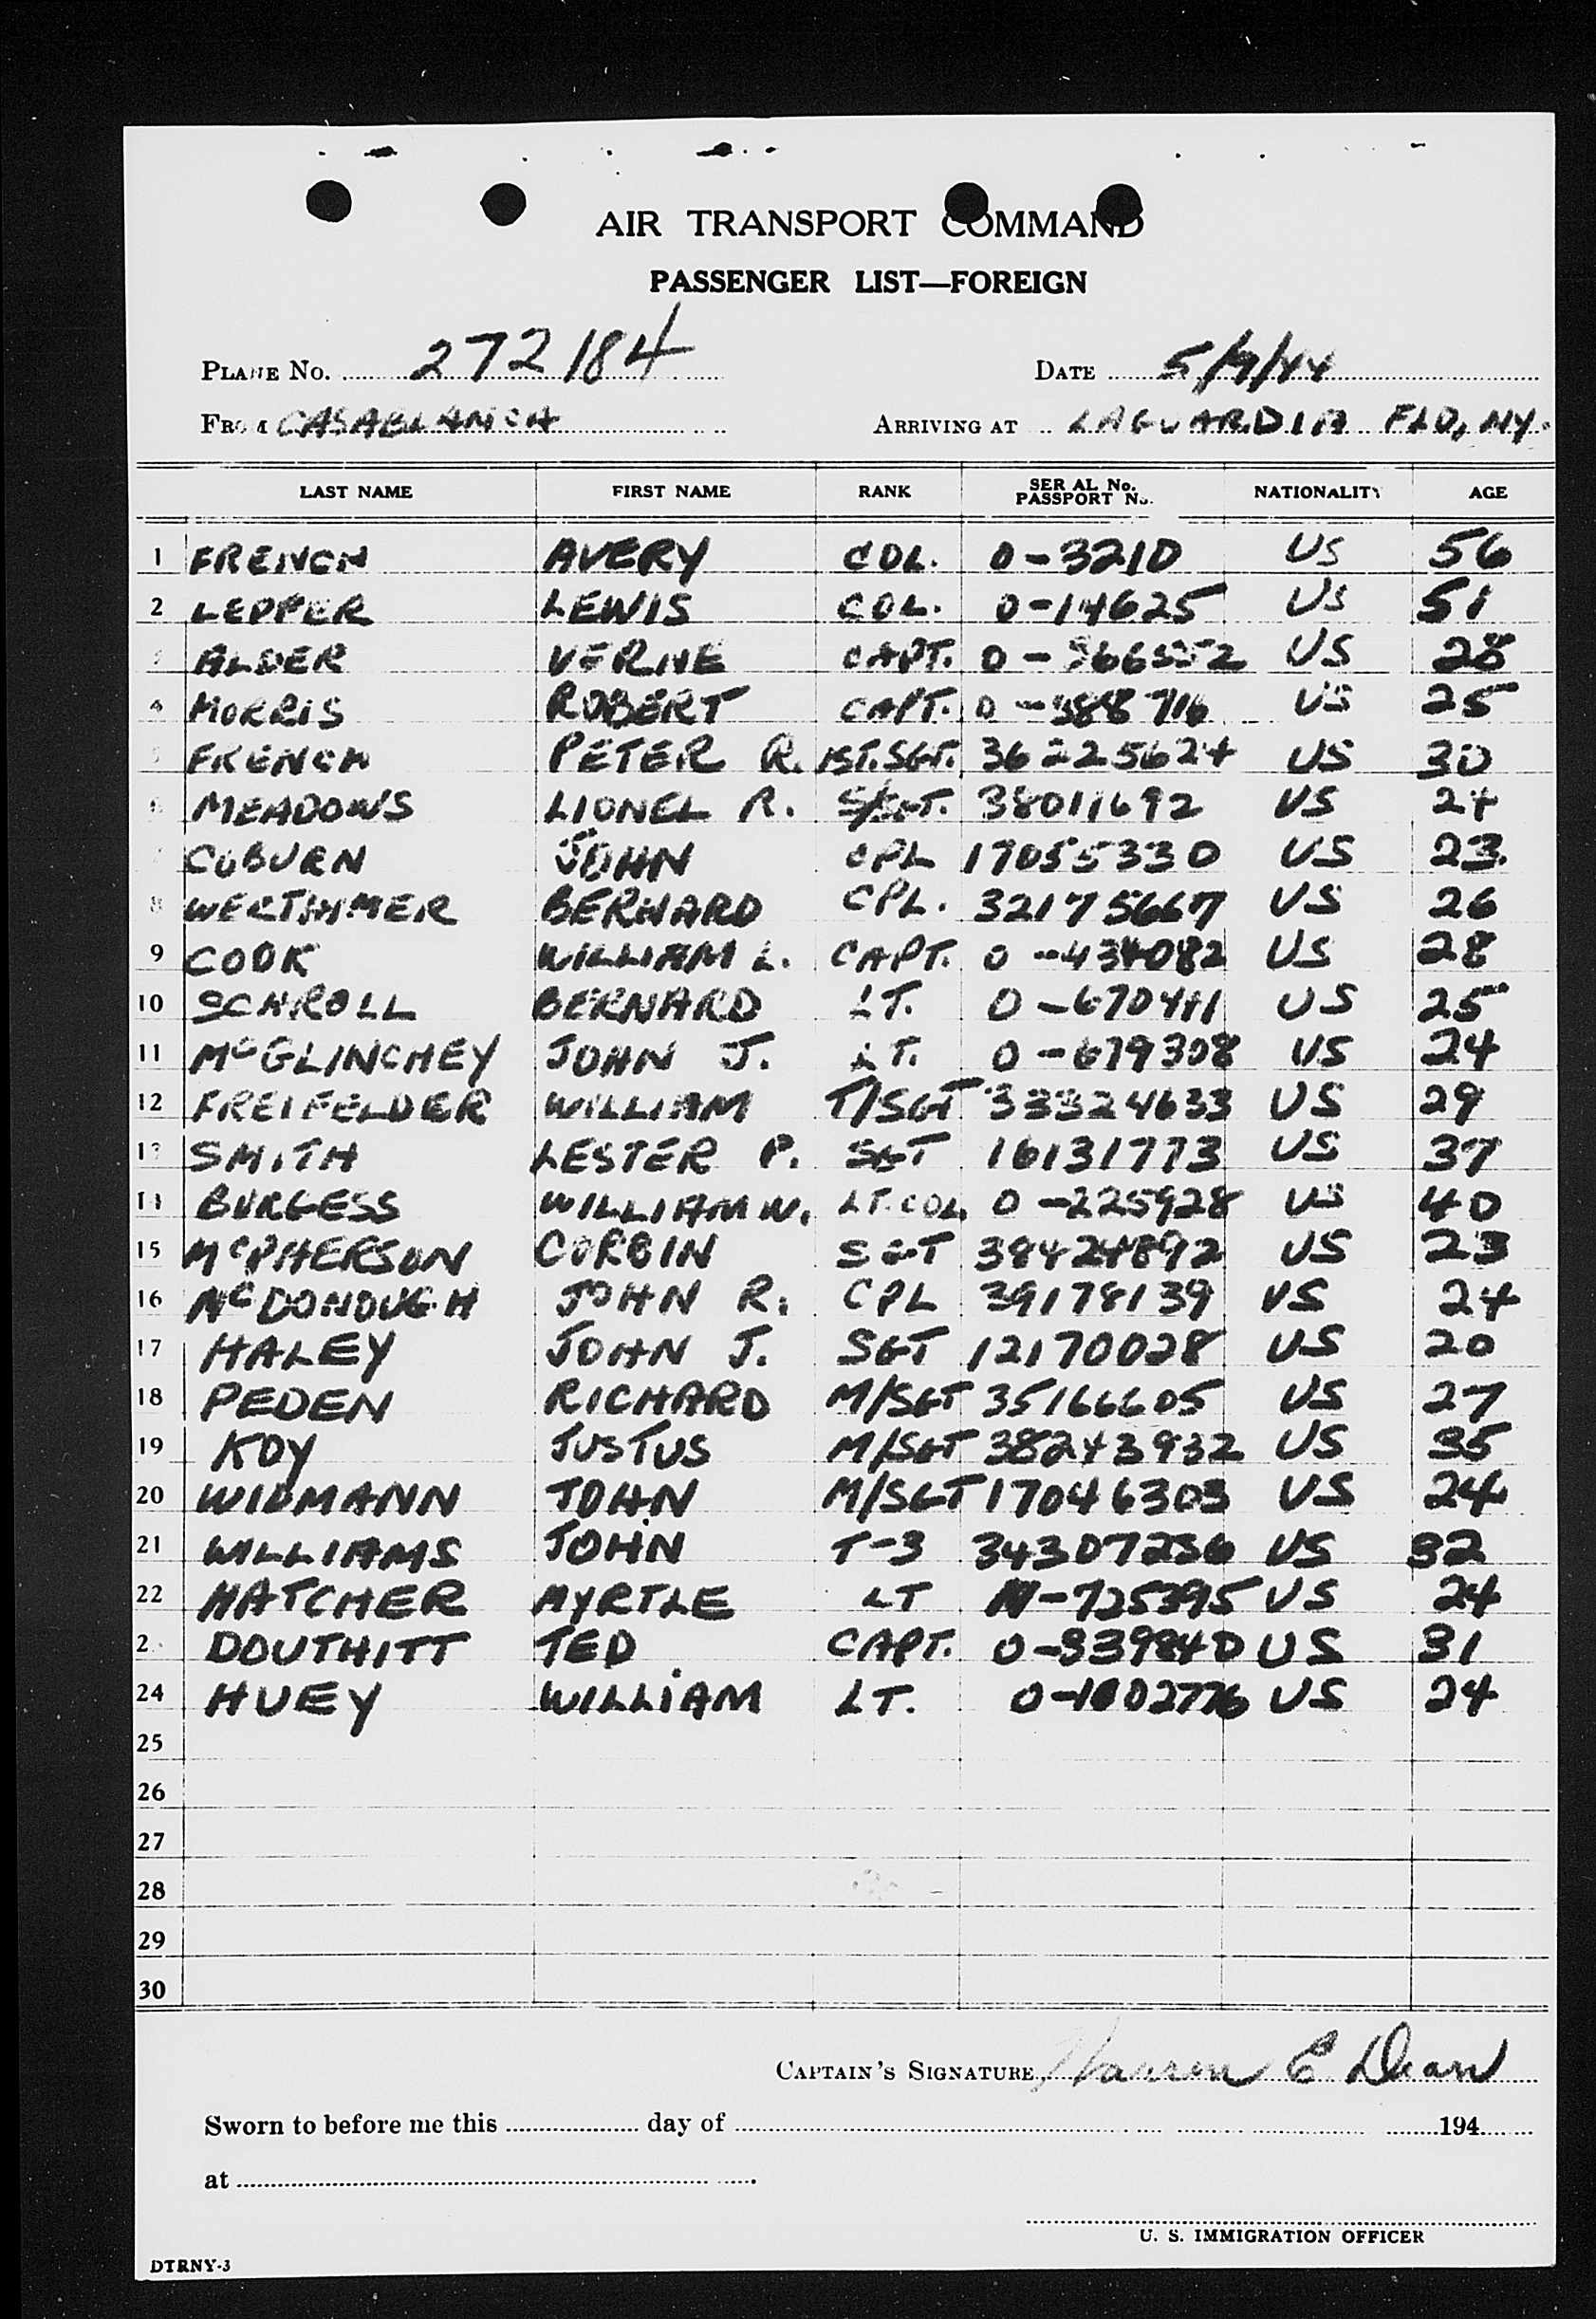 AIR TRANSPORT COMMAND
PASSENGER LIST—FOREIGN
PLANE No. 272184 DATE 5/9/44
FROM CASABLANCA ARRIVING AT LAGUARDIA FLD, NY.
LAST NAME FIRST NAME RANK SERIAL No. PASSPORT No. NATIONALITY AGE
1 FRENCH AVERY COL. O-3210 US 56
2 LEPPER LEWIS COL. O-14625 US 51
3 ALDER VERNE CAPT. US 28
4 MORRIS ROBERT CAPT. O-388716 US 25
5 FRENCH PETER R. 1ST.SGT. 36225624 US 30
6 MEADOWS LIONEL R. S/SGT. 38011692 US 24
7 COBURN JOHN CPL 17055330 US 23
8 WERTHIMER BERNARD CPL. 32175667 US 26
9 COOK WILLIAM L. CAPT. O-434082 US 28
10 SCHROLL BERNARD LT. O-670411 US 25
11 McGLINCHEY JOHN J. LT. O-679308 US 24
12 FREIFELDER WILLIAM T/SGT 33324633 US 29
13 SMITH LESTER P. SGT 16131773 US 37
14 BURGESS WILLIAM W. LT.COL. O-225928 US 40
15 McPHERSON CORBIN SGT 38424892 US 23
16 McDONOUGH JOHN R. CPL 39178139 US 24
17 HALEY JOHN J. SGT 12170028 US 20
18 PEDEN RICHARD M/SGT 35166605 US 27
19 KOY JUSTUS M/SGT 38243932 US 35
20 WIDMANN JOHN M/SGT 17046303 US 24
21 WILLIAMS JOHN T-3 34307236 US 32
22 HATCHER MYRTLE LT N-725395 US 24
23 DOUTHITT TED CAPT. O-339840 US 31
24 HUEY WILLIAM LT. O-1002776 US 24
25
26
27
28
29
30
CAPTAIN'S SIGNATURE Warren E. Dean
Sworn to before me this day of 194
at
U. S. IMMIGRATION OFFICER
DTRNY-3